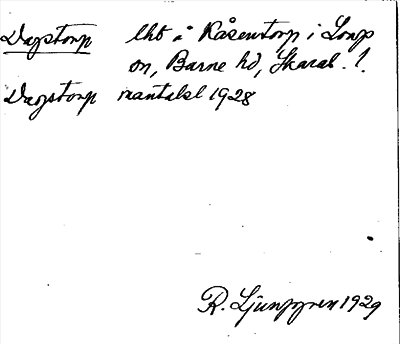 Dagstorp lht i Råsentorp i Longs
sn, Barne hd, Skarab. l.
Dagstorp mantalsl 1928
R. Ljunggren 1929